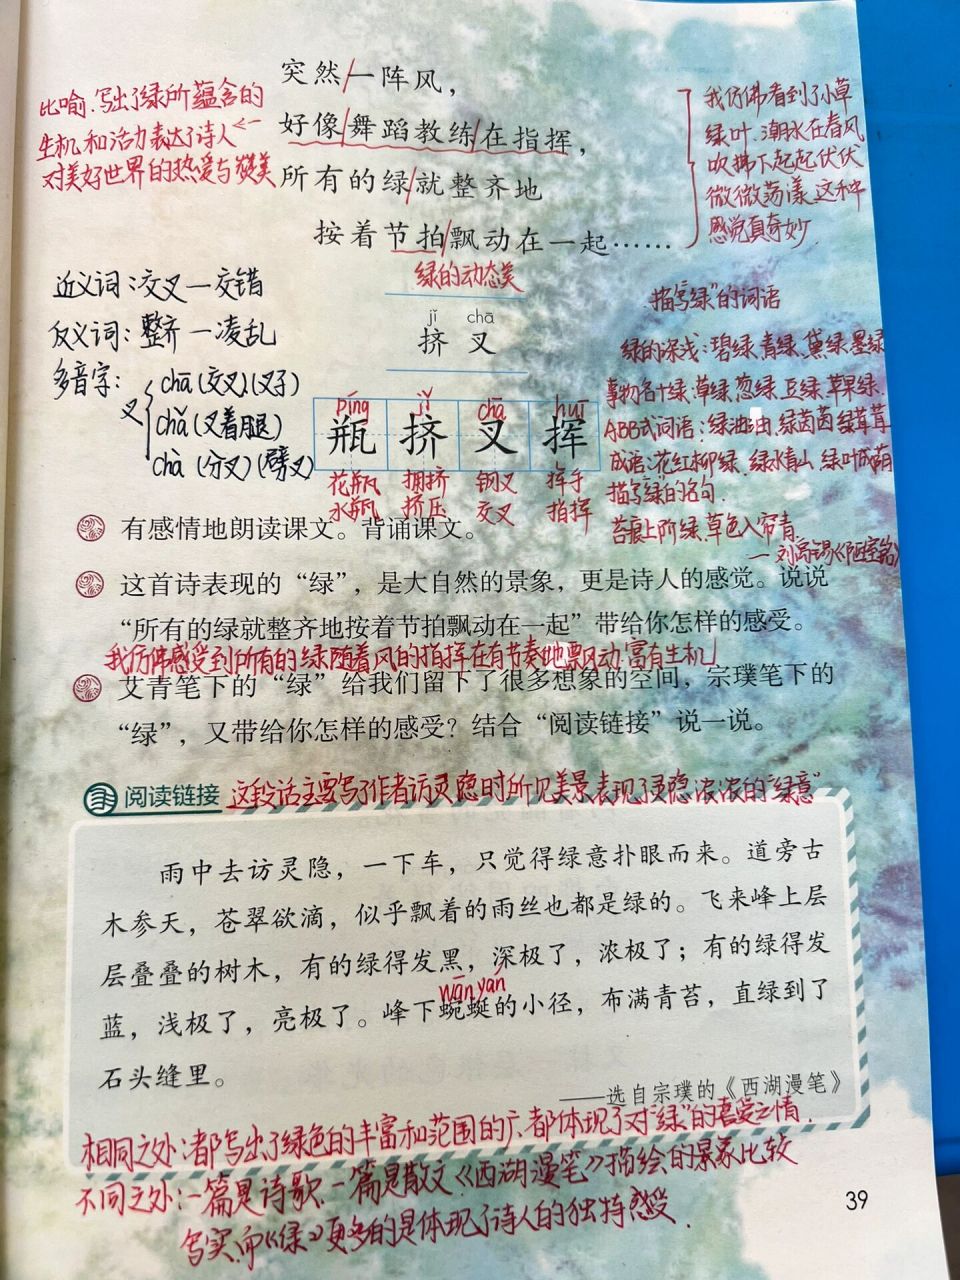 突然一阵风，
好像舞蹈教练在指挥，
所有的绿就整齐地
按着节拍飘动在一起……
比喻.写出了绿所蕴含的
生机和活力表达了诗人
对美好世界的热爱与赞美
我仿佛看到了小草
绿叶.潮水在春风
吹拂下起起伏伏
微微荡漾.这种
感觉真奇妙.
绿的动态美
近义词：交叉—交错
反义词：整齐—凌乱
多音字：
叉
chā(交叉)(叉子)
chǎ(叉着腿)
chà(分叉)(劈叉)
jǐ chā
挤 叉
píng jǐ chā huī
瓶 挤 叉 挥
花瓶 拥挤 钢叉 挥手
水瓶 挤压 交叉 指挥
描写“绿”的词语
绿的深浅：碧绿.青绿.黛绿.墨绿
事物名+绿：草绿.葱绿.豆绿.苹果绿.
ABB式词语：绿油油.绿茵茵.绿茸茸
成语：花红柳绿.绿水青山.绿叶成荫
描写绿的名句.
苔痕上阶绿.草色入帘青.
—刘禹锡《陋室铭》
有感情地朗读课文。背诵课文。
这首诗表现的“绿”，是大自然的景象，更是诗人的感觉。说说
“所有的绿就整齐地按着节拍飘动在一起”带给你怎样的感受。
我仿佛感受到所有的绿随着风的指挥在有节奏地飘动.富有生机
艾青笔下的“绿”给我们留下了很多想象的空间，宗璞笔下的
“绿”，又带给你怎样的感受？结合“阅读链接”说一说。
阅读链接
这段话主要写了作者访灵隐时所见美景表现了灵隐浓浓的“绿意”
雨中去访灵隐，一下车，只觉得绿意扑眼而来。道旁古
木参天，苍翠欲滴，似乎飘着的雨丝也都是绿的。飞来峰上层
层叠叠的树木，有的绿得发黑，深极了，浓极了；有的绿得发
wān yán
蓝，浅极了，亮极了。峰下蜿蜒的小径，布满青苔，直绿到了
石头缝里。
——选自宗璞的《西湖漫笔》
相同之处：都写出了绿色的丰富和范围的广都体现了对“绿”的喜爱之情.
不同之处：一篇是诗歌.一篇是散文《西湖漫笔》描绘的景象比较
写实.而《绿》更多的是体现了诗人的独特感受.
39